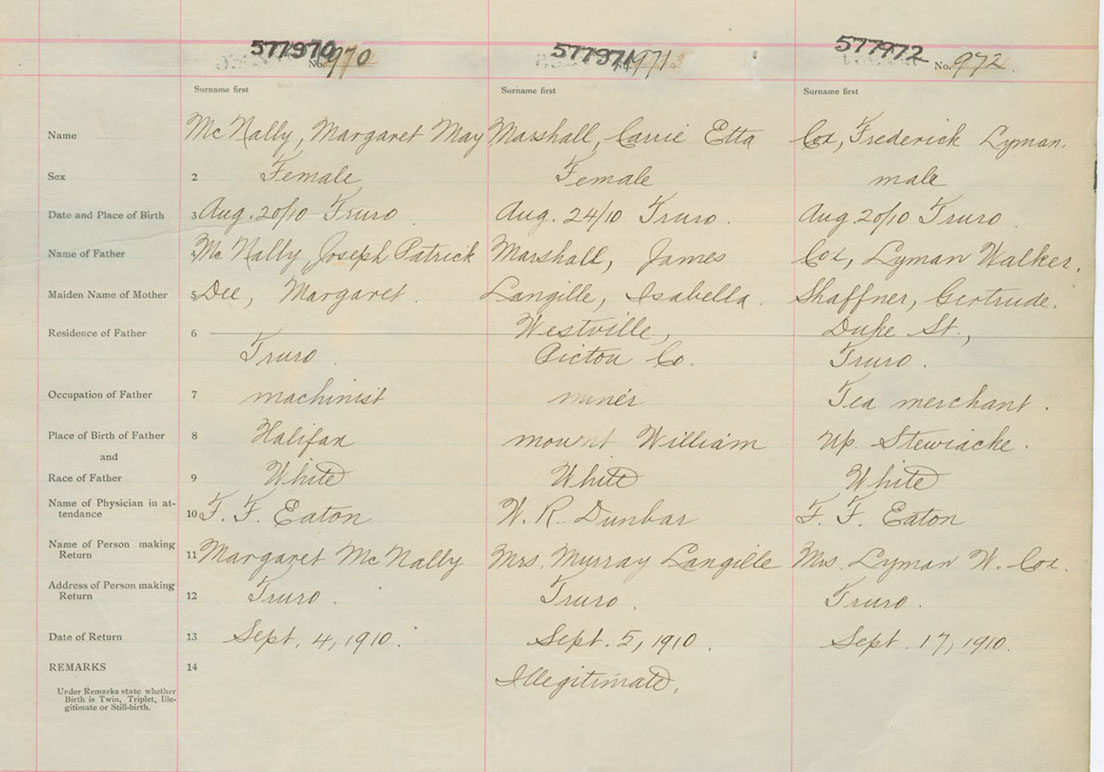 577970 No. 970 577971 No. 971 577972 No. 972
Surname first Surname first Surname first
Name McNally, Margaret May Marshall, Carrie Etta Cox, Frederick Lyman.
Sex 2 Female Female male
Date and Place of Birth 3 Aug. 20/10 Truro Aug. 24/10 Truro. Aug 20/10 Truro.
Name of Father 4 McNally, Joseph Patrick Marshall, James Cox, Lyman Walker.
Maiden Name of Mother 5 Dee, Margaret. Langille, Isabella. Shaffner, Gertrude.
Residence of Father 6 Westville, Duke St.,
Truro. Pictou Co. Truro.
Occupation of Father 7 machinist miner Tea merchant.
Place of Birth of Father 8 Halifax mount William Up. Stewiacke.
and
Race of Father 9 White White White
Name of Physician in at-
tendance 10 F. F. Eaton W. R. Dunbar F. F. Eaton
Name of Person making
Return 11 Margaret McNally Mrs. Murray Langille Mrs. Lyman W. Cox.
Address of Person making
Return 12 Truro. Truro. Truro.
Date of Return 13 Sept. 4, 1910. Sept. 5, 1910. Sept. 17, 1910.
REMARKS 14 Illegitimate.
Under Remarks state whether
Birth is Twin, Triplet, Ille-
gitimate or Still-birth.